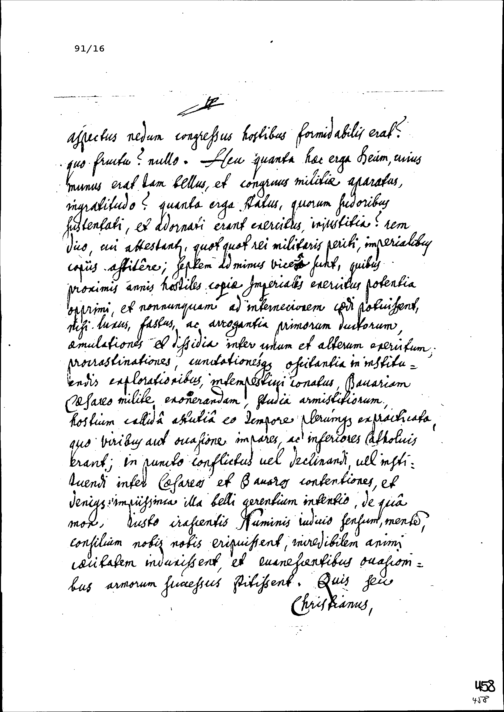 91/16
aspectus nedum congressus hostibus formidabilis erat?
quo fructu? nullo. Heu quanta hac erga Deum, cuius
munus erat tam bellus, et congruus militiæ aparatus,
ingratitudo? quanta erga status, quorum sudoribus
sustentati, et adornari erant exercitus, iniustitia? rem
dico, cui attestant, quotquot rei militaris periti, imperialibus
copiis astitêre; septem ad minus vices sunt, quibus
proximis annis hostiles copiæ Imperialis exercitus potentia
opprimi, et nonnunquam ad internecionem cædi potuissent,
nisi luxus, fastus, ac arrogantia primorum ductorum,
æmulationes et dissidia inter unum et alterum exercitum,
procrastinationes, cunctationesqs oscitantia in institu=
endis explorationibus, intempestivi conatus, Bauariam
Cæsareo milite exonerandam, studia armistitiorum,
hostium callidâ astutiâ eo tempore plerumqs expracticata,
quo viribus aut occasione impares, ac inferiores Catholicis
erant; in puncto conflictus vel declinandi, vel insti=
tuendi inter Cæsareos et Bauaros contentiones, et
deniqs impiissima illa belli gerentium intentio, de quâ
mox, iusto irascentis Numinis iudicio sensum, mentē,
consilium nobis nobis eripuissent, incredibilem animi
cæcitatem induxissent, et euanescentibus occasioni=
bus armorum successus stitissent. Quis seu
Christianus,
458
458